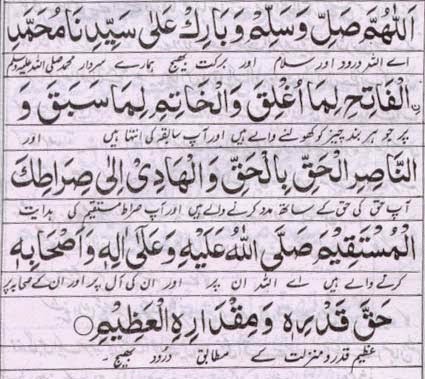 اَللّٰهُمَّ صَلِّ وَسَلِّمْ وَبَارِكْ عَلٰى سَيِّدِنَا مُحَمَّدِ
اے اللہ درود اور سلام اور برکت بھیج ہمارے سردار محمد صلی اللہ علیہ وسلم
الْفَاتِحِ لِمَا اُغْلِقَ وَالْخَاتِمِ لِمَا سَبَقَ وَ
پر جو ہر بند چیز کو کھولنے والے ہیں اور آپ سابقہ کی انتہا ہیں اور
النَّاصِرِ الْحَقِّ بِالْحَقِّ وَالْهَادِىْ اِلٰى صِرَاطِكَ
آپ حق کی حق کے ساتھ مدد کرنے والے ہیں اور آپ صراط مستقیم کی ہدایت
الْمُسْتَقِيْمِ صَلَّى اللّٰهُ عَلَيْهِ وَعَلٰى اٰلِهٖ وَاَصْحَابِهٖ
کرنے والے ہیں اے اللہ ان پر اور ان کی آل پر اور ان کے صحابہ پر
حَقَّ قَدْرِهٖ وَمِقْدَارِهِ الْعَظِيْمِ ○
عظیم قدر و منزلت کے مطابق درُود بھیج ۔